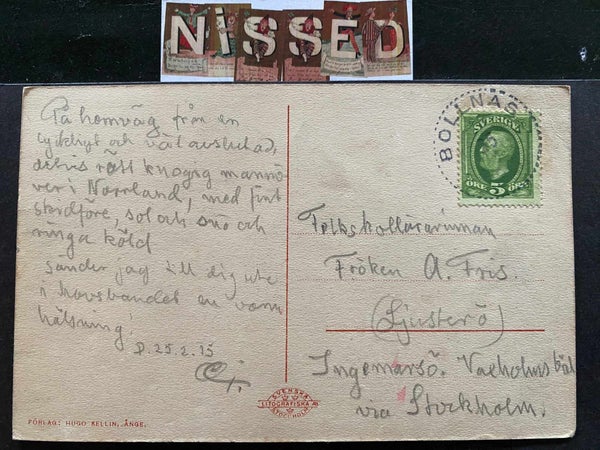 NISSED
På hemväg från en
lyckligt och väl avslutad,
delvis rätt knogig manöv-
ver i Norrland, med fint
skidföre, sol och snö och
ringa köld
sänder jag till dig ute
i havsbandet en varm
hälsning!
d. 25.2.15
BOLLNÄS
SVERIGE
ÖRE 5 ÖRE
Folkskollärarinnan
Fröken A. Fris.
(Ljusterö)
Ingemarsö. Vaxholms båt
via Stockholm.
SVENSKA
LITOGRAFISKA AB
STOCKHOLM
FÖRLAG: HUGO KELLIN, ÅNGE.